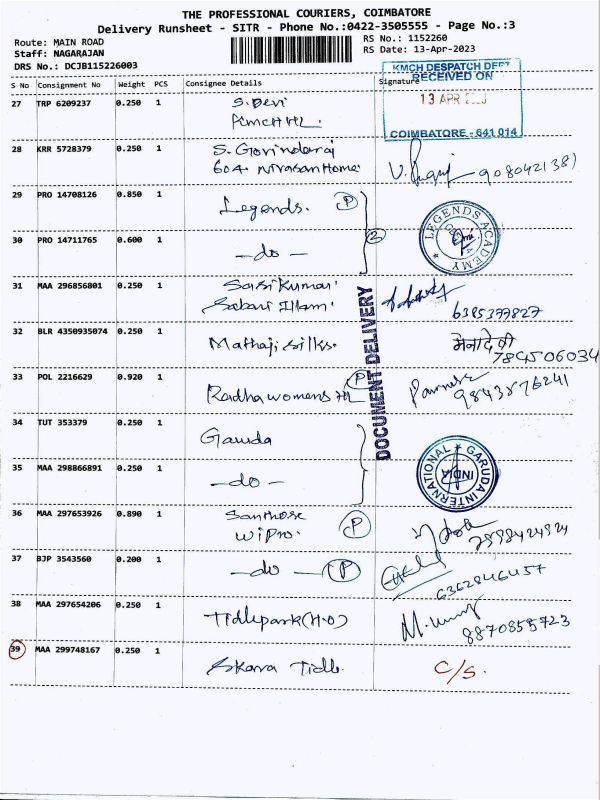 THE PROFESSIONAL COURIERS, COIMBATORE
Delivery Runsheet - SITR - Phone No.:0422-3505555 - Page No.:3
Route: MAIN ROAD
Staff: NAGARAJAN
DRS No.: DCJB115226003
RS No.: 1152260
RS Date: 13-Apr-2023
S No Consignment No Weight PCS Consignee Details Signature
KMCH DESPATCH DEPT
RECEIVED ON
13 APR
COIMBATORE - 641 014
27 TRP 6209237 0.250 1 S. Devi
KMCH HL.
28 KRR 5728379 0.250 1 S. Govindaraj
604. Nivasan Home
9080421381
29 PRO 14708126 0.850 1 Legends. P
30 PRO 14711765 0.600 1 -do- 2
LEGENDS ACADEMY
31 MAA 296856801 0.250 1 Sasikumar
Sabari Illam
6385377827
32 BLR 4350935074 0.250 1 Mathaji silks.
मेनादेवी
784506034
33 POL 2216629 0.920 1 Radha womens HL P
9843876241
DOCUMENT DELIVERY
34 TUT 353379 0.250 1 Garuda
35 MAA 298866891 0.250 1 -do-
GARUDA INTERNATIONAL
INDIA
36 MAA 297653926 0.890 1 Santhose
Wipro. P
37 BJP 3543560 0.200 1 -do- P
6362846457
38 MAA 297654206 0.250 1 Tidlepark (H.O)
8870855723
39 MAA 299748167 0.250 1 Skava Tidle.
C/S.